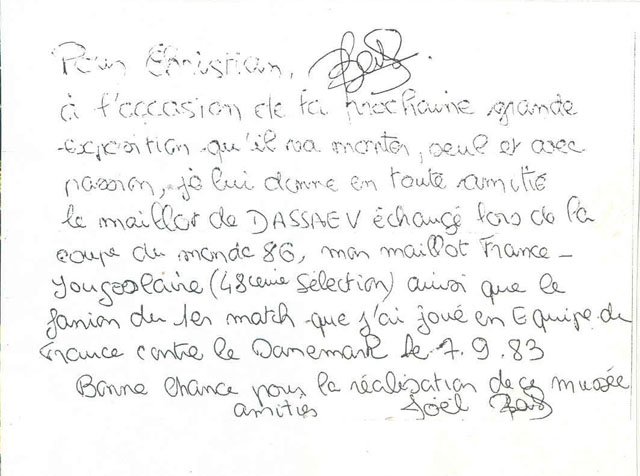 Pour Christian,
à l'occasion de la prochaine grande
exposition qu'il va monter, seul et avec
passion, je lui donne en toute amitié
le maillot de DASSAEV échangé lors de la
coupe du monde 86, mon maillot France-
Yougoslavie (48ème Sélection) ainsi que le
fanion du 1er match que j'ai joué en Equipe de
France contre le Danemark le 7.9.83
Bonne chance pour la réalisation de ce musée
amitiés Joël Bats